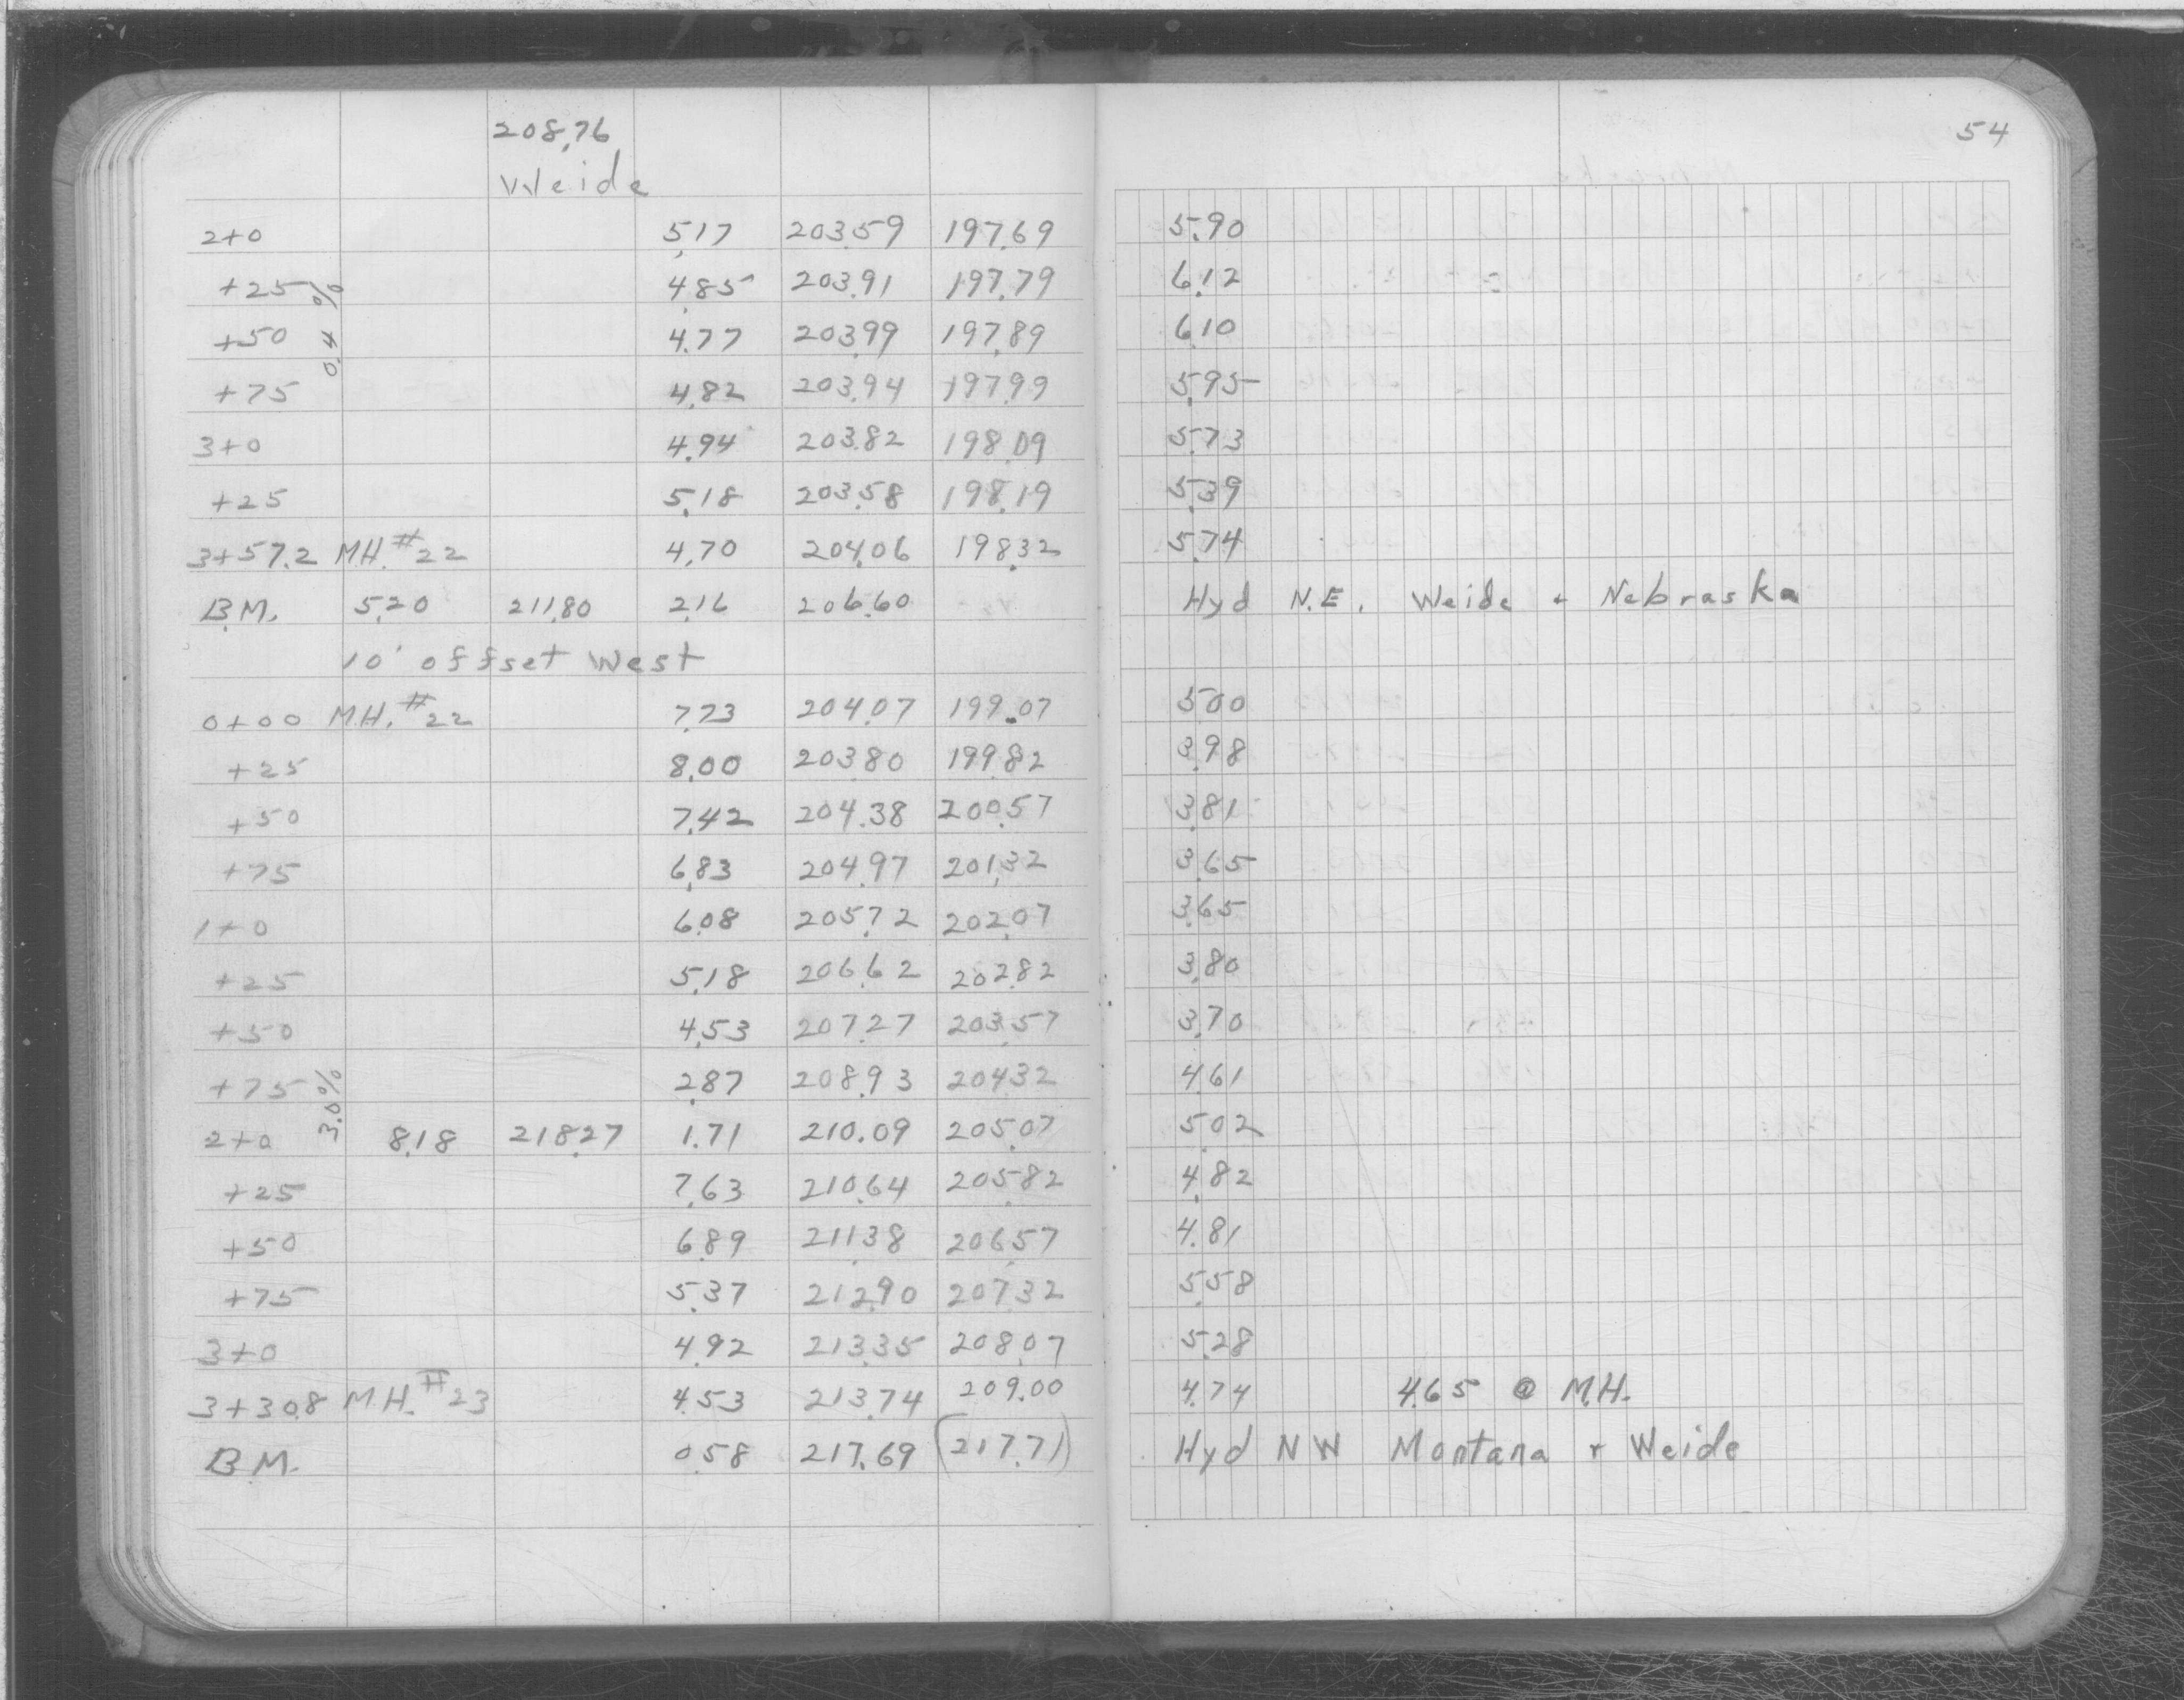 54
208.76
Weide
2+0 5.17 203.59 197.69 5.90
+25 4.85 203.91 197.79 6.12
+50 4.77 203.99 197.89 6.10
0.4 %
+75 4.82 203.94 197.99 5.95
3+0 4.94 203.82 198.09 5.73
+25 5.18 203.58 198.19 5.39
3+57.2 M.H. #22 4.70 204.06 198.32 5.74
B.M. 5.20 211.80 2.16 206.60 Hyd N.E. Weide + Nebraska
10' offset West
0+00 M.H. #22 7.73 204.07 199.07 5.00
+25 8.00 203.80 199.82 3.98
+50 7.42 204.38 200.57 3.81
+75 6.83 204.97 201.32 3.65
1+0 6.08 205.72 202.07 3.65
+25 5.18 206.62 202.82 3.80
+50 4.53 207.27 203.57 3.70
+75 2.87 208.93 204.32 4.61
3.0%
2+0 8.18 218.27 1.71 210.09 205.07 5.02
+25 7.63 210.64 205.82 4.82
+50 6.89 211.38 206.57 4.81
+75 5.37 212.90 207.32 5.58
3+0 4.92 213.35 208.07 5.28
3+30.8 M.H. #23 4.53 213.74 209.00 4.74 4.65 @ M.H.
B.M. 0.58 217.69 (217.71) Hyd NW Montana + Weide